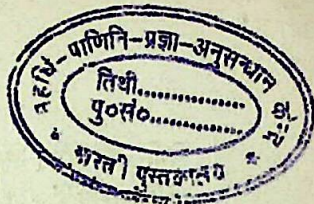 महर्षि-पाणिनि-प्रज्ञा-अनुसन्धान
तिथी..............
पु०सं०..............
भारती पुस्तकालय